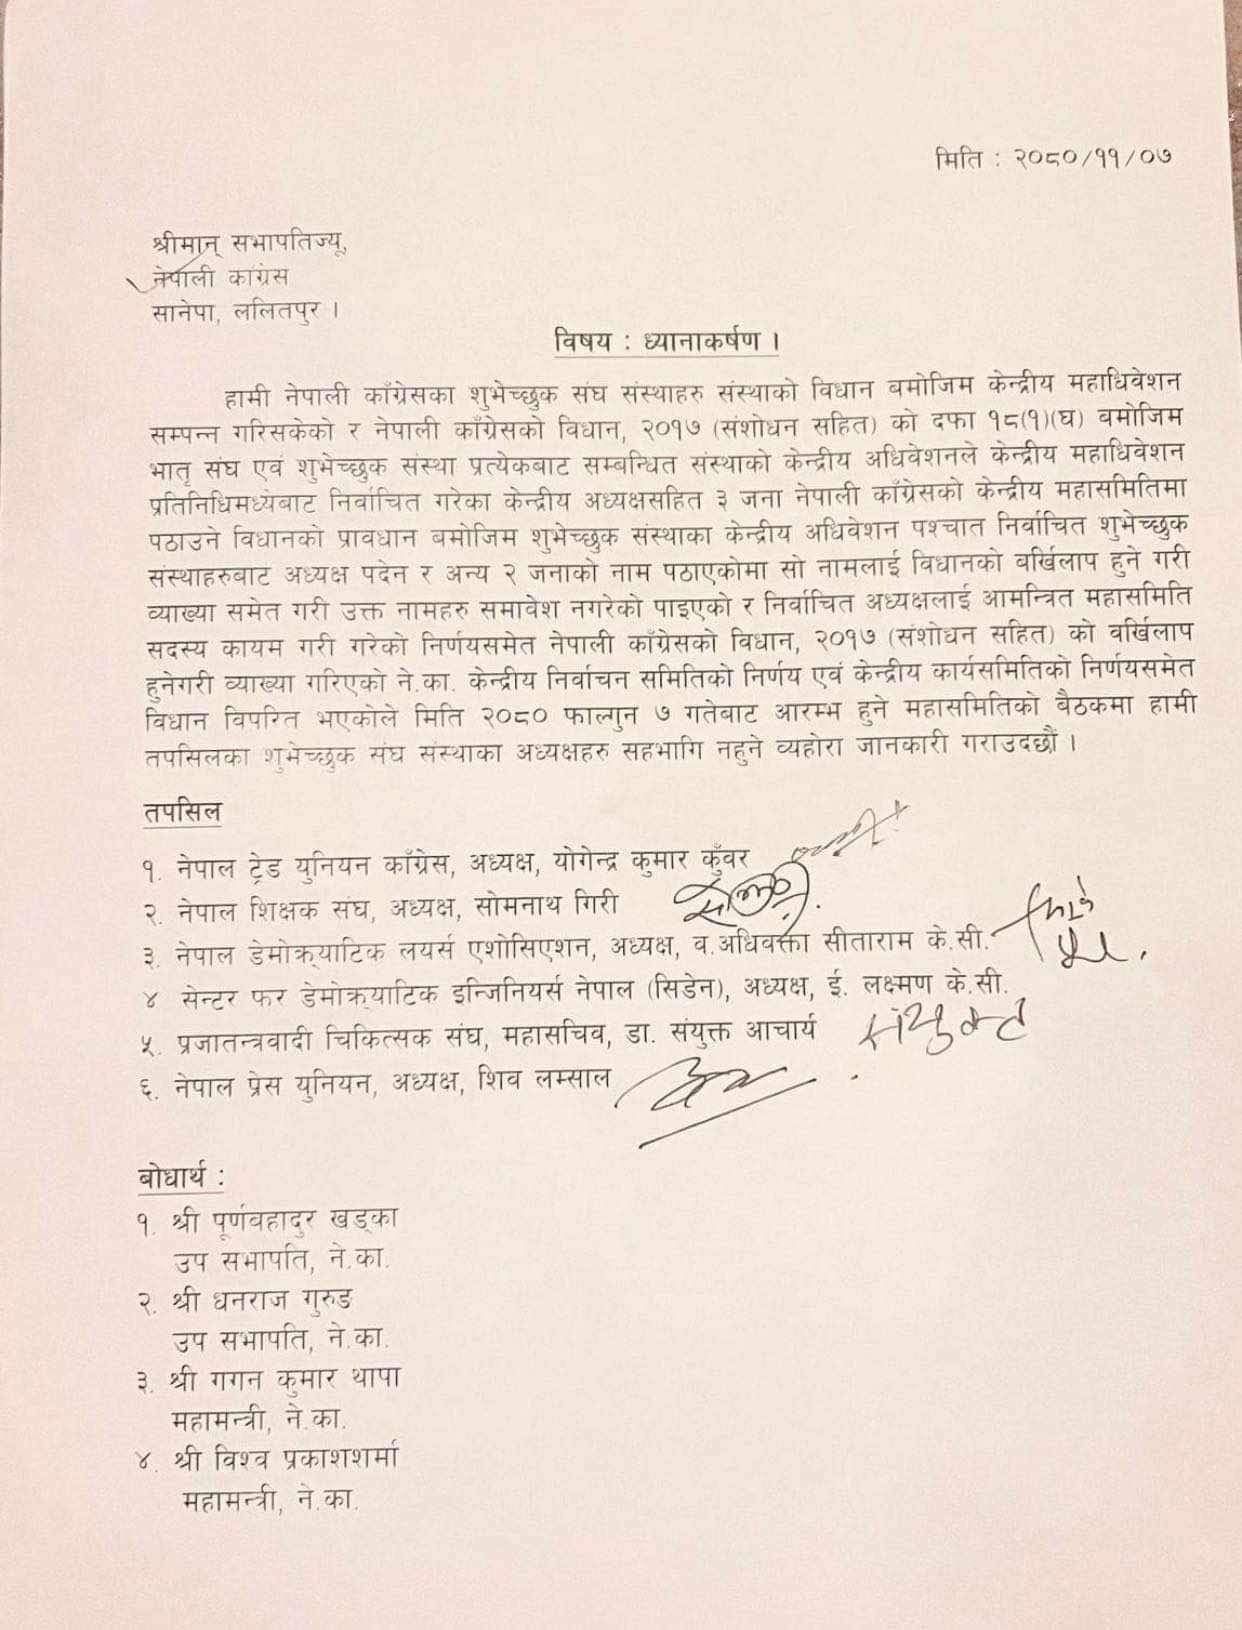 मिति : २०८०/११/०७
श्रीमान् सभापतिज्यू,
नेपाली कांग्रेस
सानेपा, ललितपुर ।
विषय : ध्यानाकर्षण ।
हामी नेपाली काँग्रेसका शुभेच्छुक संघ संस्थाहरु संस्थाको विधान बमोजिम केन्द्रीय महाधिवेशन
सम्पन्न गरिसकेको र नेपाली काँग्रेसको विधान, २०१७ (संशोधन सहित) को दफा १८(१)(घ) बमोजिम
भातृ संघ एवं शुभेच्छुक संस्था प्रत्येकबाट सम्बन्धित संस्थाको केन्द्रीय अधिवेशनले केन्द्रीय महाधिवेशन
प्रतिनिधिमध्येबाट निर्वाचित गरेका केन्द्रीय अध्यक्षसहित ३ जना नेपाली काँग्रेसको केन्द्रीय महासमितिमा
पठाउने विधानको प्रावधान बमोजिम शुभेच्छुक संस्थाका केन्द्रीय अधिवेशन पश्चात निर्वाचित शुभेच्छुक
संस्थाहरुबाट अध्यक्ष पदेन र अन्य २ जनाको नाम पठाएकोमा सो नामलाई विधानको बर्खिलाप हुने गरी
व्याख्या समेत गरी उक्त नामहरु समावेश नगरेको पाइएको र निर्वाचित अध्यक्षलाई आमन्त्रित महासमिति
सदस्य कायम गरी गरेको निर्णयसमेत नेपाली काँग्रेसको विधान, २०१७ (संशोधन सहित) को वर्खिलाप
हुनेगरी व्याख्या गरिएको ने.का. केन्द्रीय निर्वाचन समितिको निर्णय एवं केन्द्रीय कार्यसमितिको निर्णयसमेत
विधान विपरित भएकोले मिति २०८० फाल्गुन ७ गतेबाट आरम्भ हुने महासमितिको बैठकमा हामी
तपसिलका शुभेच्छुक संघ संस्थाका अध्यक्षहरु सहभागि नहुने व्यहोरा जानकारी गराउदछौं ।
तपसिल
१. नेपाल ट्रेड युनियन काँग्रेस, अध्यक्ष, योगेन्द्र कुमार कुँवर
२. नेपाल शिक्षक संघ, अध्यक्ष, सोमनाथ गिरी
३. नेपाल डेमोक्र्याटिक लयर्स एशोसिएशन, अध्यक्ष, व.अधिवक्ता सीताराम के.सी.
४ सेन्टर फर डेमोक्र्याटिक इन्जिनियर्स नेपाल (सिडेन), अध्यक्ष, ई. लक्ष्मण के.सी.
५. प्रजातन्त्रवादी चिकित्सक संघ, महासचिव, डा. संयुक्त आचार्य संयुक्त
६. नेपाल प्रेस युनियन, अध्यक्ष, शिव लम्साल
बोधार्थ :
१. श्री पूर्णवहादुर खड्का
उप सभापति, ने.का.
२. श्री धनराज गुरुङ
उप सभापति, ने.का.
३. श्री गगन कुमार थापा
महामन्त्री, ने.का.
४. श्री विश्व प्रकाशशर्मा
महामन्त्री, ने.का.